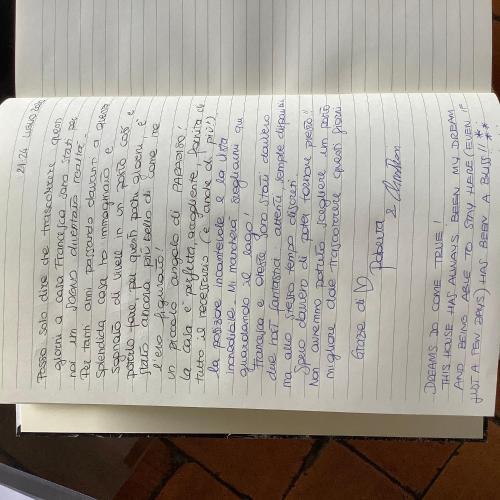 21-24 Luglio
Posso solo dire che trascorrere questi
giorni a casa Francesca sono stati per
noi un sogno diventato realtà.
Per tanti anni passando davanti a questa
splendida casa ho immaginato e
sognato di vivere in un posto così e
poterlo fare, per questi pochi giorni è
stato ancora più bello di come me
l'ero figurato!
un piccolo angolo di PARADISO!
La casa è perfetta, accogliente fornita di
tutto il necessario (e anche di più!),
la posizione incantevole e la vista
incredibile. Mi mancherà svegliarmi qui
guardando il lago!
Francesca e Oreste sono stati davvero
due host fantastici, attenti, sempre disponibili
ma allo stesso tempo discreti.
Spero davvero di poter tornare presto!
Non avremmo potuto scegliere un posto
migliore dove trascorrere questi giorni
Grazie di
Roberta &
DREAMS DO COME TRUE!
THIS HOUSE HAS ALWAYS BEEN MY DREAM
AND BEING ABLE TO STAY HERE (EVEN IF
JUST A FEW DAYS) HAS BEEN A BLISS!!